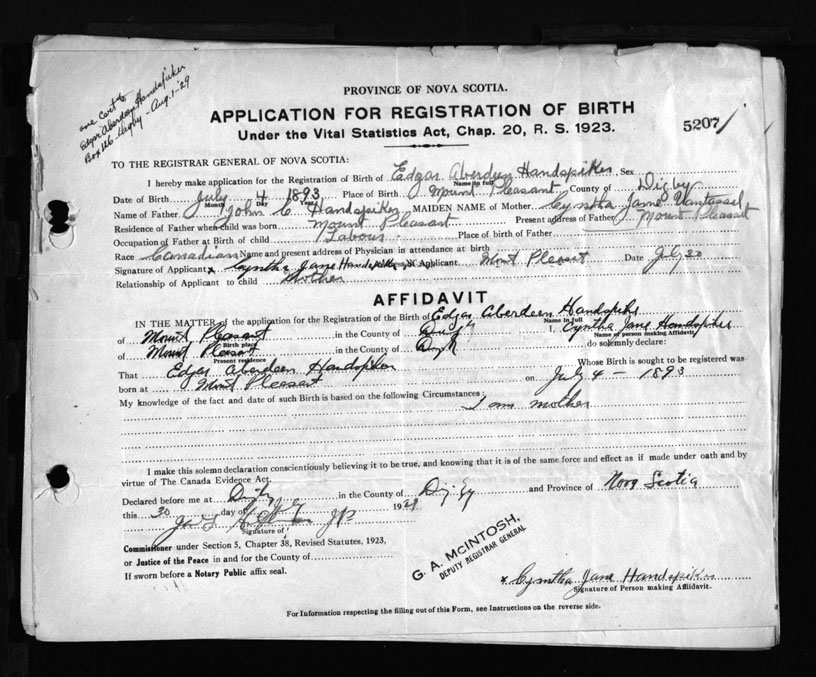 one cert to
Edgar Aberdeen Handspiker
Box 126 Digby - Aug. 1-29
PROVINCE OF NOVA SCOTIA.
APPLICATION FOR REGISTRATION OF BIRTH
Under the Vital Statistics Act, Chap. 20, R. S. 1923.
5207
TO THE REGISTRAR GENERAL OF NOVA SCOTIA:
I hereby make application for the Registration of Birth of Edgar Aberdeen Handspiker Sex
Name in full
Date of Birth July 4 1893 Place of Birth Mount Pleasant County of Digby
Month Day Year
Name of Father John C Handspiker MAIDEN NAME of Mother Cyntha Jane Vantassel
Residence of Father when child was born Mount Pleasant Present address of Father Mount Pleasant
Occupation of Father at Birth of child Labour Place of birth of Father
Race Canadian Name and present address of Physician in attendance at birth
Signature of Applicant x Cyntha Jane Handspiker Applicant Mont Pleasat Date July 30
Relationship of Applicant to child Mother
AFFIDAVIT
IN THE MATTER of the application for the Registration of the Birth of Edgar Aberdeen Handspiker
Name in full
of Mount Pleasant in the County of Digby I, Cyntha Jane Handspiker
Birth place Name of person making Affidavit
of Mount Pleasant in the County of Digby do solemnly declare:
Present residence
That Edgar Aberdeen Handspiker Whose Birth is sought to be registered was
born at Mont Pleasart on July 4 - 1893
My knowledge of the fact and date of such Birth is based on the following Circumstances: I am mother
I make this solemn declaration conscientiously believing it to be true, and knowing that it is of the same force and effect as if made under oath and by
virtue of The Canada Evidence Act.
Declared before me at Digby in the County of Digby and Province of Nova Scotia
this 30 day of July 1929
JP
Signature of
Commissioner under Section 5, Chapter 38, Revised Statutes, 1923,
or Justice of the Peace in and for the County of
If sworn before a Notary Public affix seal.
G. A. McINTOSH,
DEPUTY REGISTRAR GENERAL
x Cyntha Jane Handspiker
Signature of Person making Affidavit.
For Information respecting the filling out of this Form, see Instructions on the reverse side.